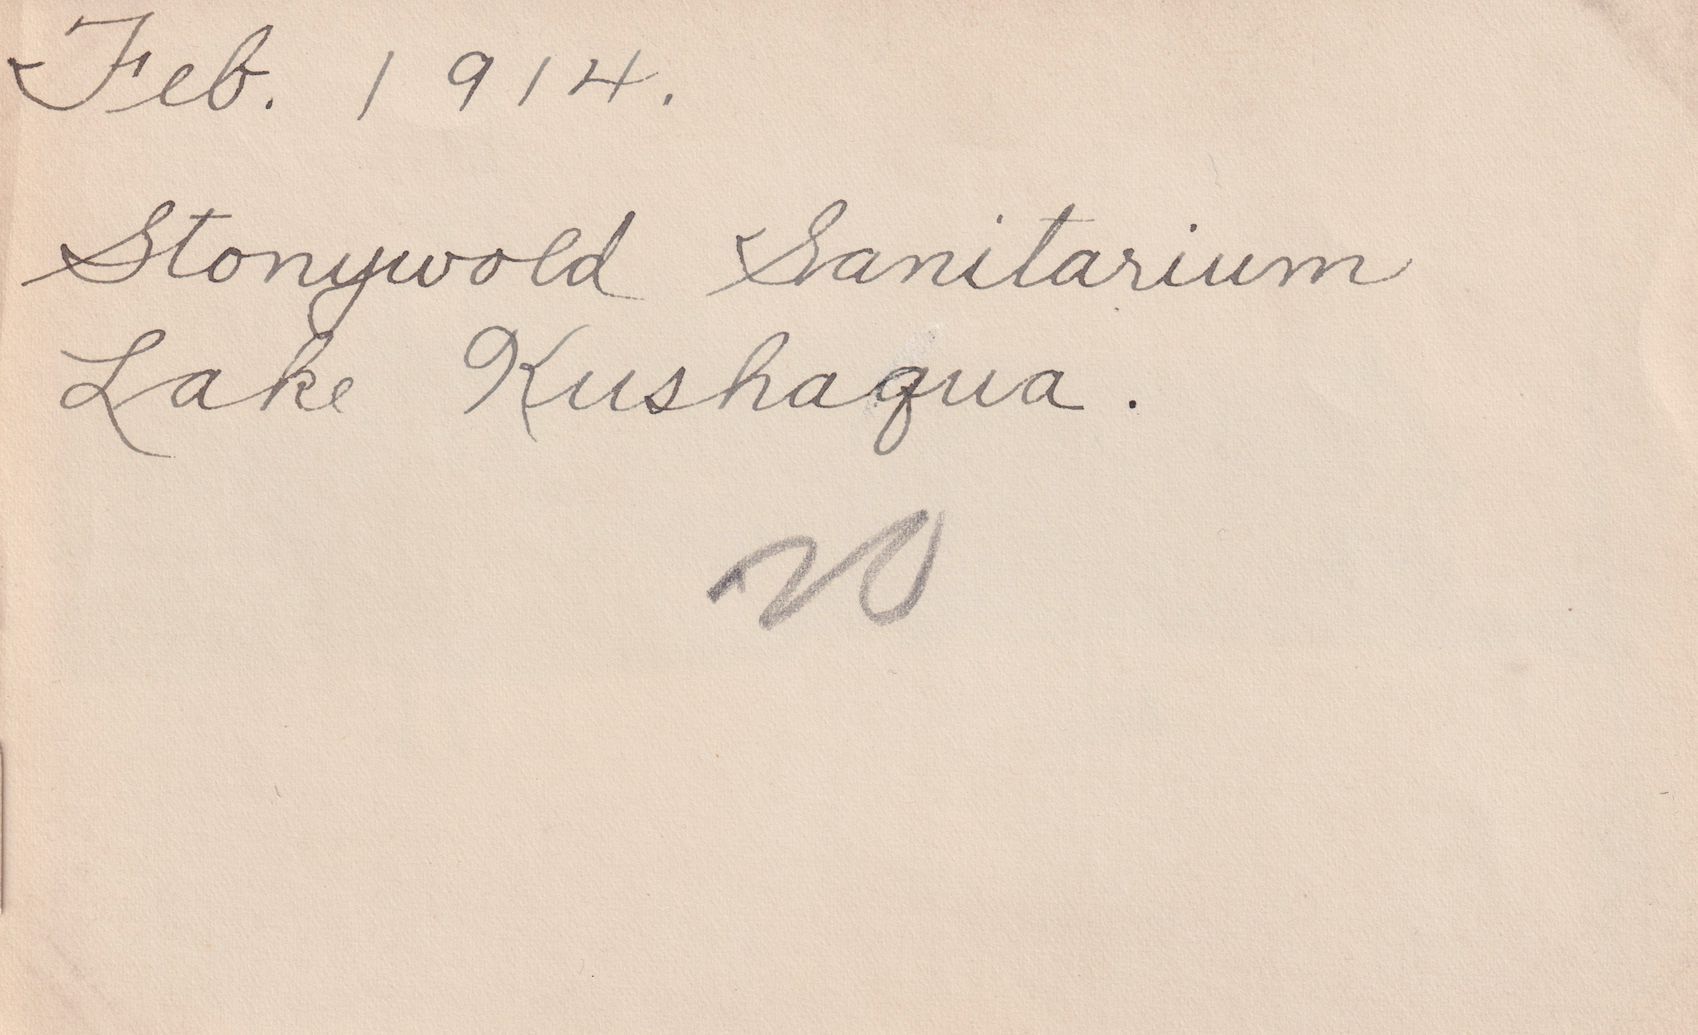 Feb. 1914.
Stonywold Sanitarium
Lake Kushaqua.
20